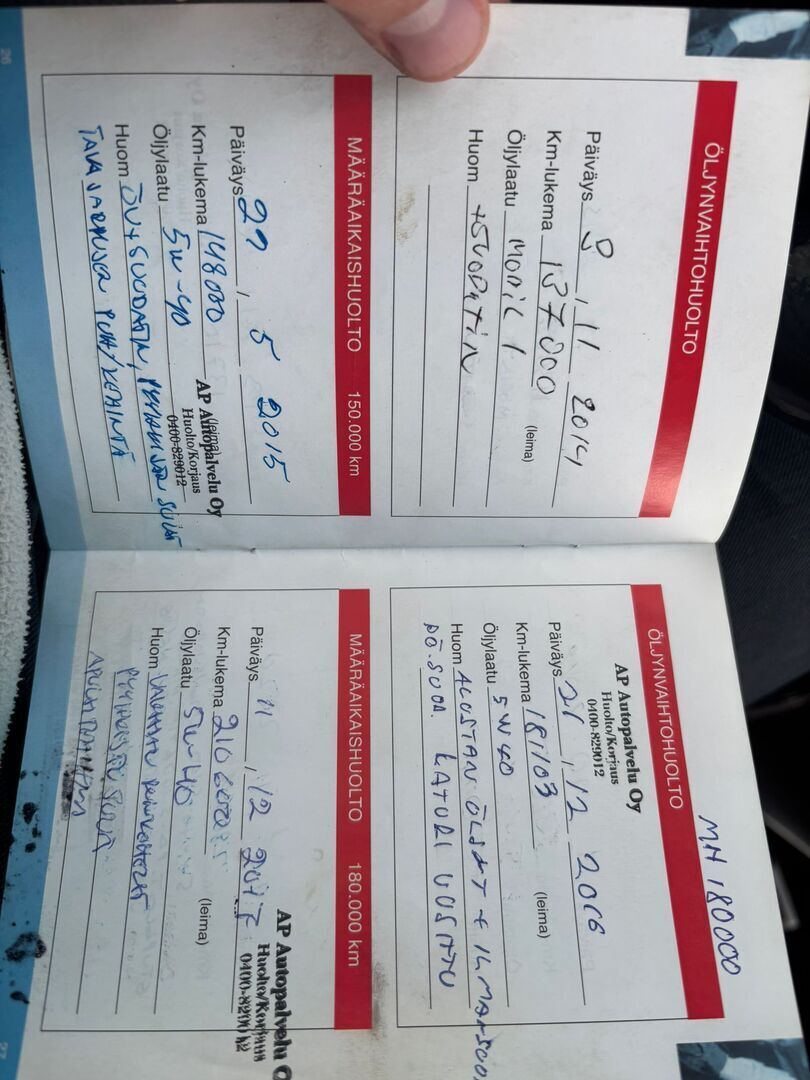 26
ÖLJYNVAIHTOHUOLTO
Päiväys 8 , 11 2014
Km-lukema 137000
Öljylaatu MOBIL 1
(leima)
Huom +SUODATIN
MÄÄRÄAIKAISHUOLTO 150.000 km
Päiväys 29 , 5 2015
Km-lukema 148000
Öljylaatu 5W-40
(leima)
AP Autopalvelu Oy
Huolto/Korjaus
0400-829012
Huom ÖV+SUODATIN,
MH 180000
ÖLJYNVAIHTOHUOLTO
AP Autopalvelu Oy
Huolto/Korjaus
0400-829012
Päiväys 21 , 12 2016
Km-lukema 181103
Öljylaatu 5W40
(leima)
Huom ALUSTAN ÖLJYT + ILMANSUO.
PÖ.SUOD. LATURI UUSITTU
MÄÄRÄAIKAISHUOLTO 180.000 km
Päiväys 11 , 12 2017
Km-lukema 210600
Öljylaatu 5W-40
(leima)
AP Autopalvelu O
Huolto/Korjaus
0400-829012
Huom
27